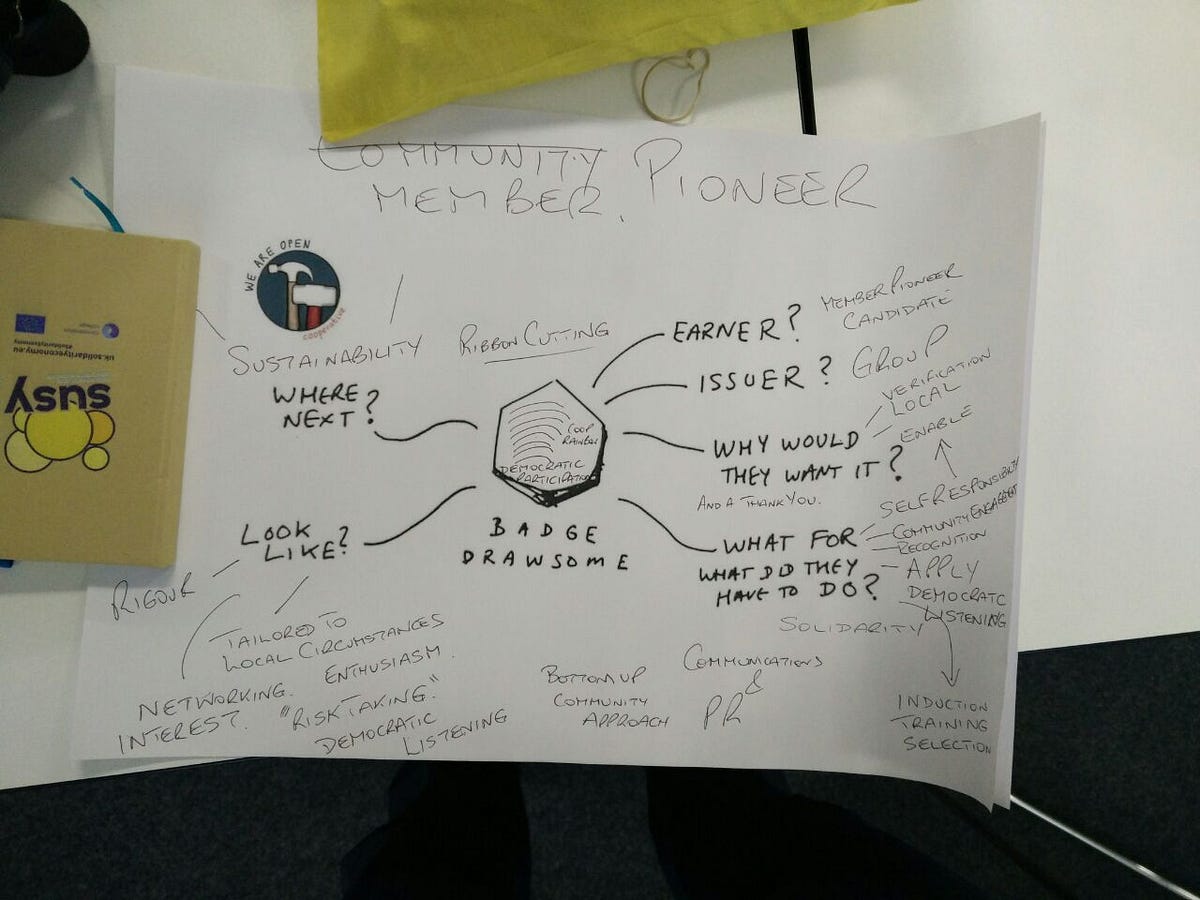 COMMUNITY
MEMBER. PIONEER
WE ARE OPEN
cooperative
SUSTAINABILITY
RIBBON CUTTING
WHERE
NEXT?
EARNER?
MEMBER PIONEER
CANDIDATE
ISSUER?
GROUP
VERIFICATION
LOCAL
ENABLE
WHY WOULD
THEY WANT IT?
AND A THANK YOU.
COOP
DEMOCRATIC
PARTICIPATION
BADGE
DRAWSOME
WHAT FOR
WHAT DID THEY
HAVE TO DO?
SELF RESPONSIBILITY
COMMUNITY ENGAGEMENT
RECOGNITION
APPLY
DEMOCRATC
LISTENING
SOLIDARITY
INDUCTION
TRAINING
SELECTION
LOOK
LIKE?
RIGOUR
TAILORED TO
LOCAL CIRCUMSTANCES
NETWORKING.
INTEREST.
ENTHUSIASM.
"RISK TAKING."
DEMOCRATIC
LISTENING
BOTTOM UP
COMMUNITY
APPROACH
COMMUNICATIONS
&
PR
susy
uk.solidarityeconomy.eu
#solidarityeconomy